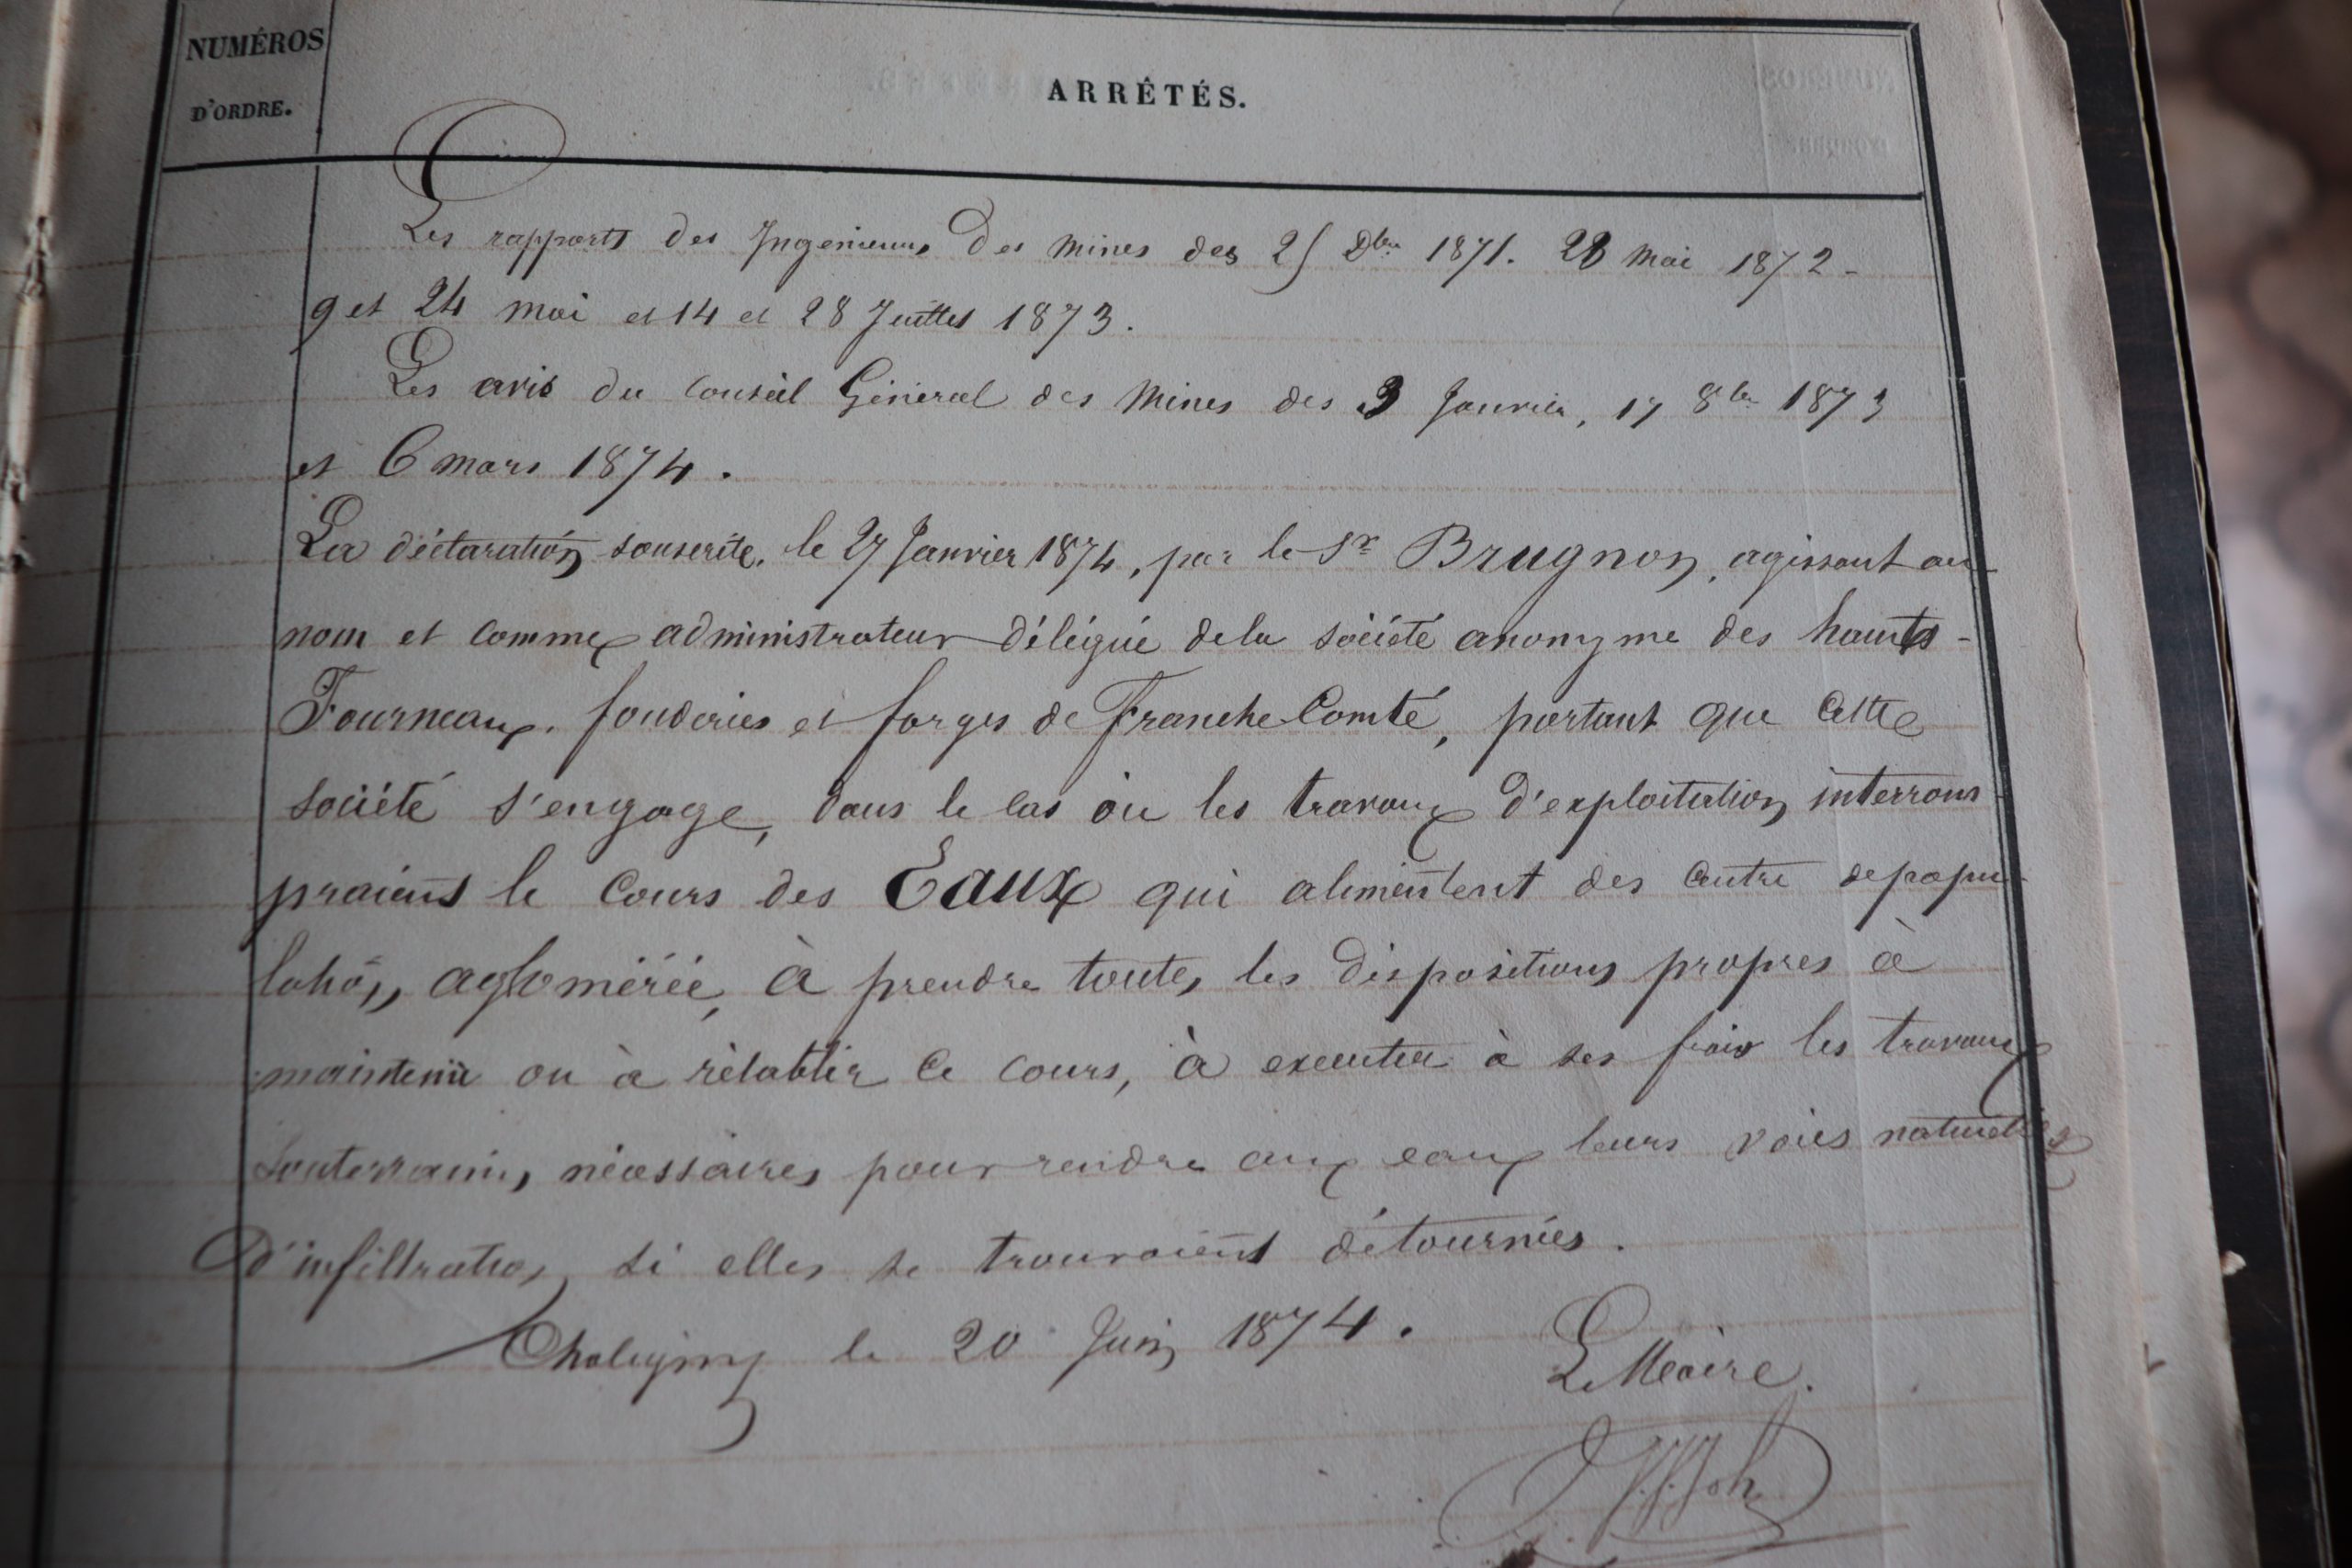 NUMÉROS
D'ORDRE.
ARRÊTÉS.
Les rapports des Ingenieurs des mines des 25 Dbre 1871. 28 mai 1872 -
9 et 24 mai et 14 et 28 Juillet 1873.
Les avis du Conseil Général des Mines des 3 Janvier, 17 8bre 1873
et 6 mars 1874.
La déclaration souscrite, le 27 Janvier 1874, par le Sr Brugnon, agissant au
nom et comme administrateur délégué de la société anonyme des hauts-
Fourneaux, fonderies et forges de Franche Comté, portant que cette
société s'engage, dans le cas où les travaux d'exploitation interrom-
praient le cours des Eaux qui alimentent des centre de popu-
lation, aglomérée, à prendre toutes les dispositions propres à
maintenir ou à rétablir le cours, à executer à ses frais les travaux
souterrains, nécessaires pour rendre aux eaux leurs voies naturelles
d'infiltration, si elles se trouvaient détournées.
Chaligny le 20 Juin 1874.
Le Maire.